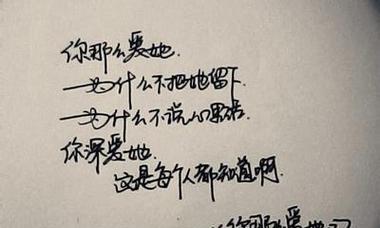 你那么爱她
为什么不把她留下
为什么不说心里话
你深爱她
这是每个人都知道啊
你那么爱她